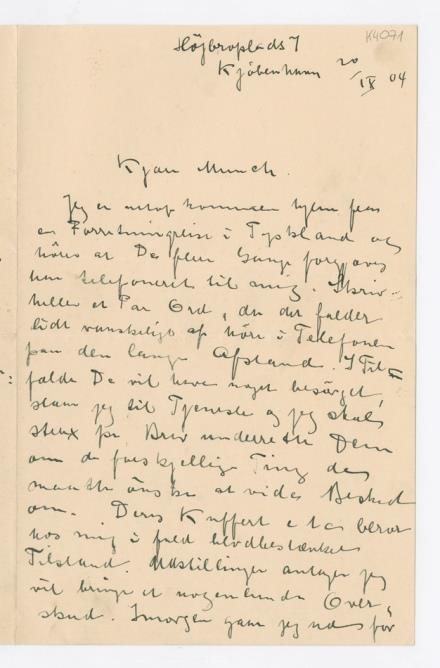 K4071
Höjbroplads 7
Kjöbenhavn 20/IX 04
Kjære Munch.
Jeg er netop kommen hjem fra
en Forretningsreise i Tyskland og
hörer at De flere Gange forgjæves
har telefoneret til mig. Skriv
heller et Par Ord, da det falder
lidt vanskeligt at höre i Telefonen
paa den lange Afstand. I Til=
fælde De vil have noget besörget,
staar jeg til Tjeneste og jeg skal
strax pr. Brev underrette Dem
om de forskjellige Ting de
maatte önske at vide Besked
om. Deres Kuffert etc beror
hos mig i fuld blodbestænket
Tilstand. Udstillingen antager jeg
vil bringe et nogenlunde Over=
skud. Imorgen gaar jeg ud for